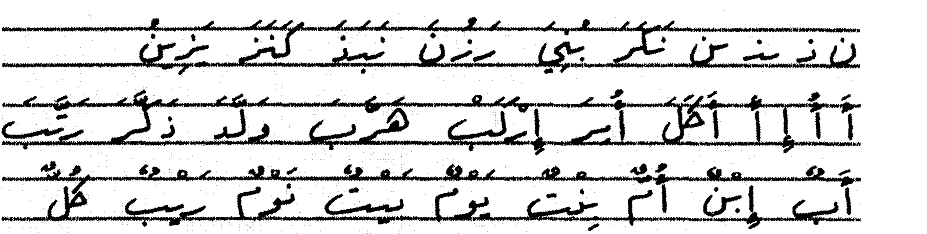 ن ذ ىذ سن نَكَرَ بُنِيَ رَزُنَ نَبَذَ كَنَزَ يَزِينُ
أَ أُ إِ أَّ أَكَلَ أُمِرَ إِرْكَبْ هَرَّبَ وَلَّدَ ذَكَّرَ رَتَّبَ
أَبٌ إِبْنٌ أُمٌّ بِنْتٌ يَوْمٌ بَيْتٌ نَوْمٌ رَيْبٌ كُلٌّ